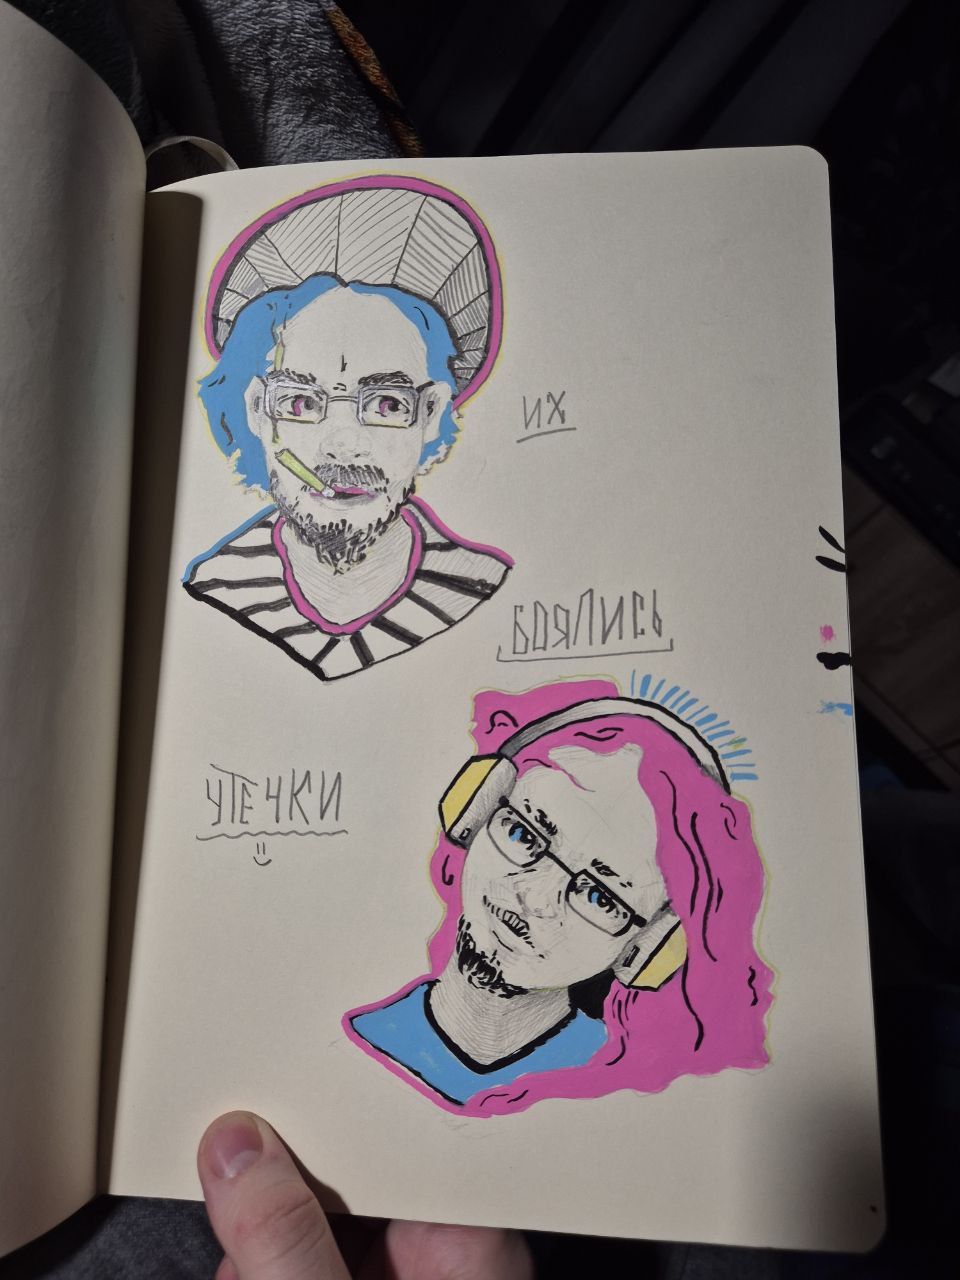 ИХ
БОЯЛИСЬ
УТЕЧКИ